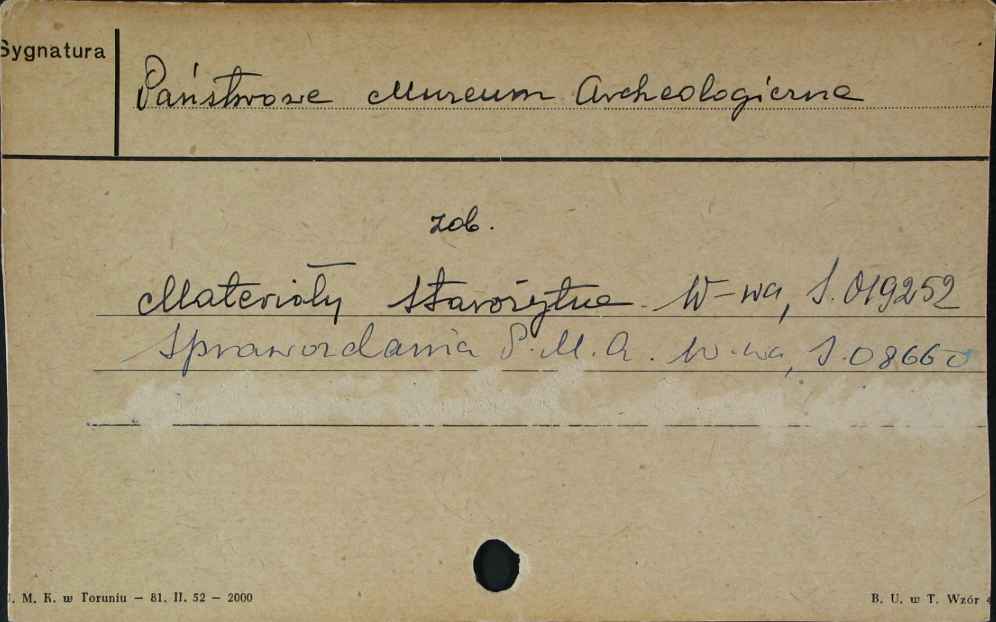 Sygnatura
Państwowe Muzeum Archeologiczne
zob.
Materiały Starożytne W-wa, S.019252
Sprawozdania P.M.A. W-wa, S.08660
. M. K. w Toruniu — 81. II. 52 — 2000
B. U. w T. Wzór